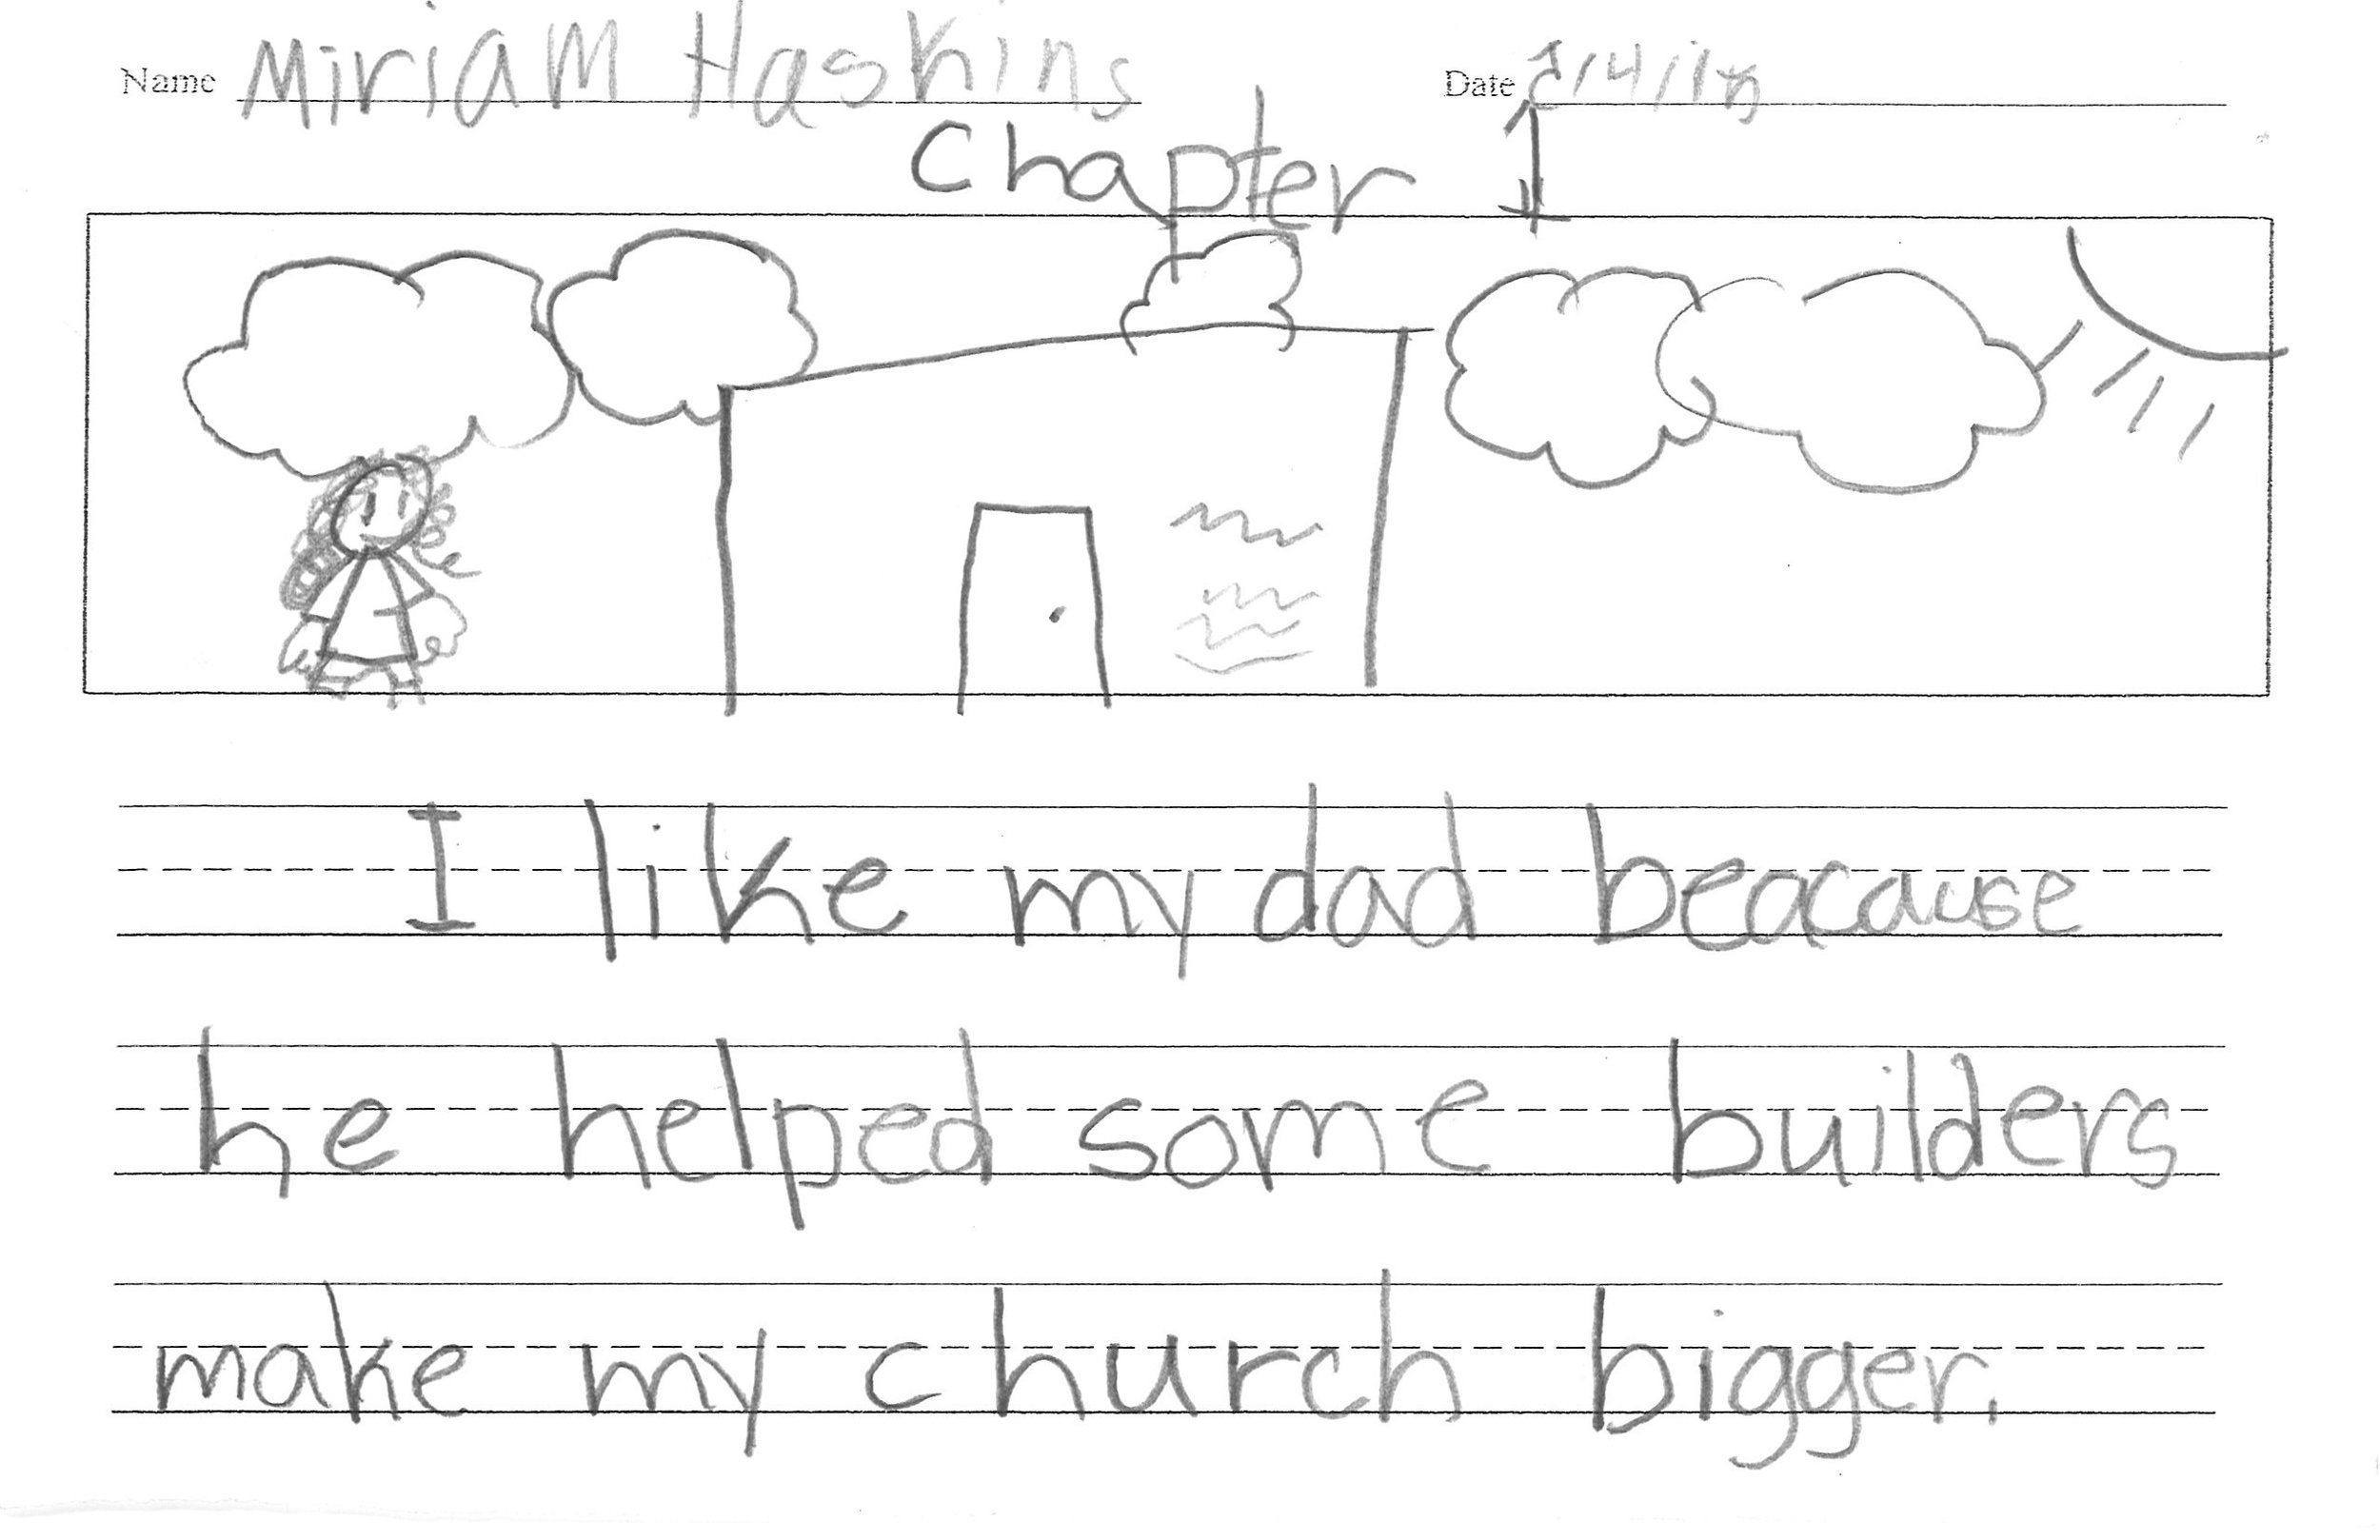 Name Miriam Haskins Date
Chapter 1
I like my dad beacause
he helped some builders
make my church bigger.